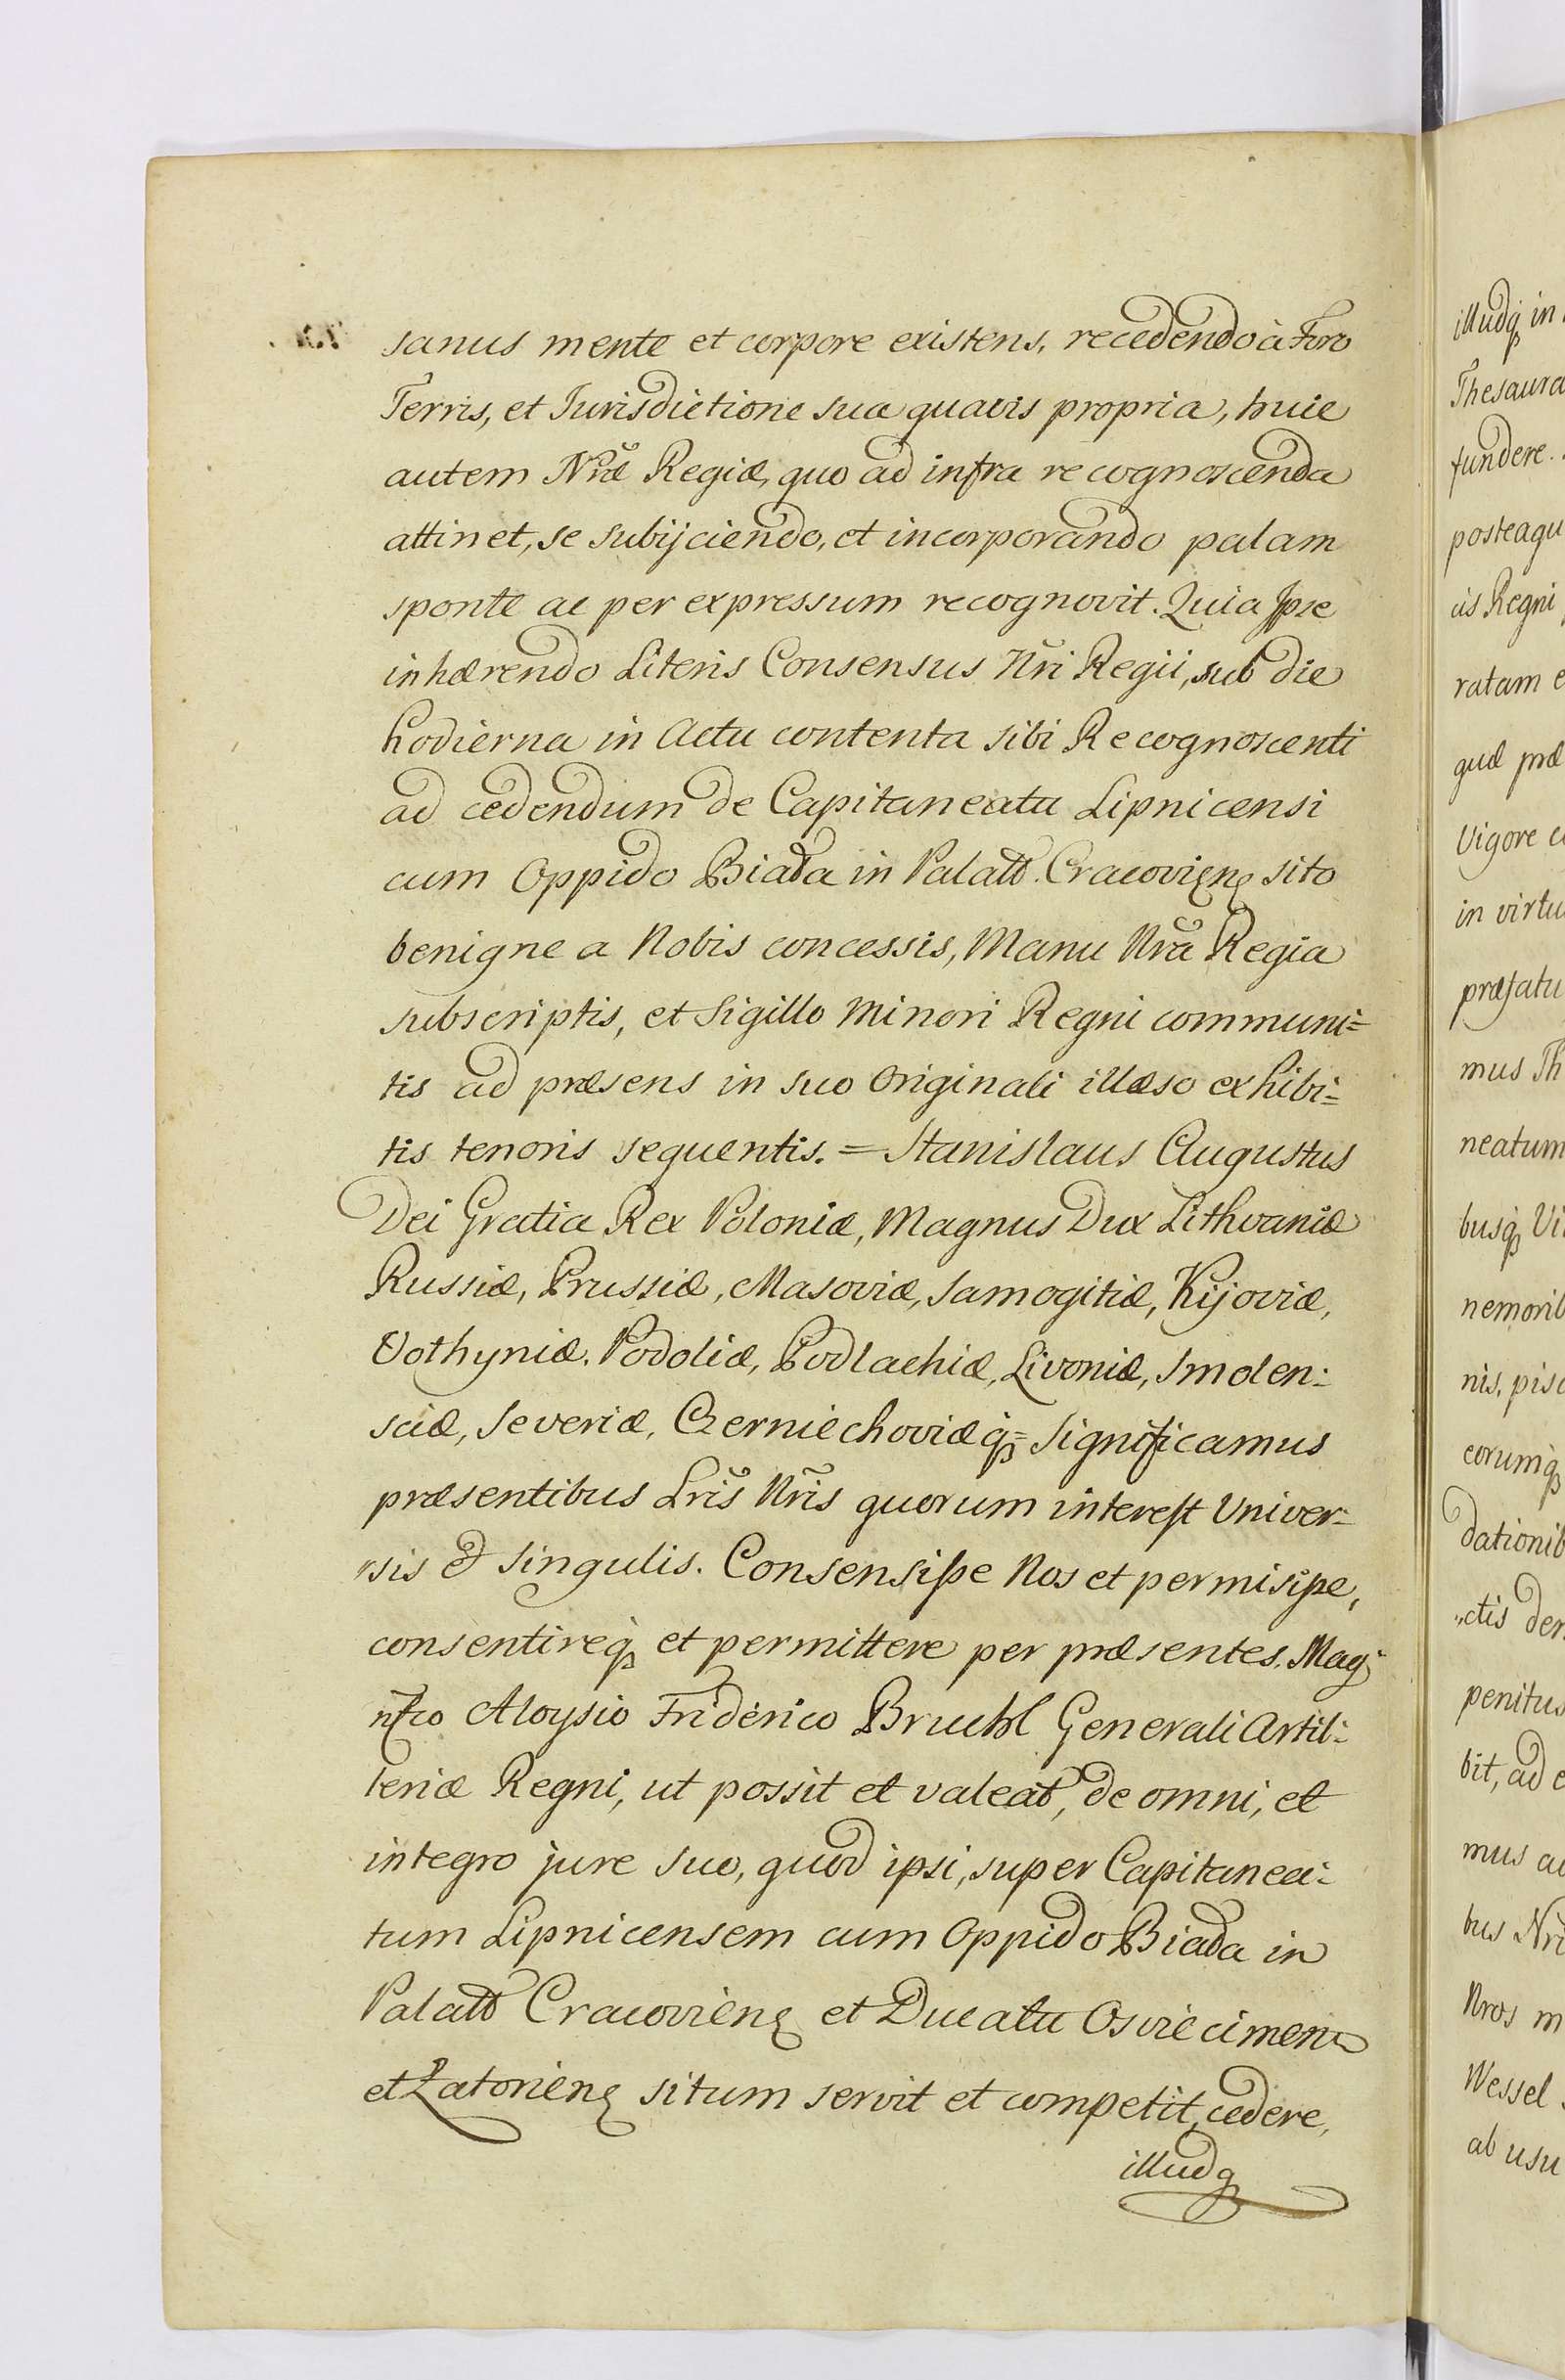 sanus mente et corpore existens, recedendo à Foro
Terris, et Jurisdictione sua quavis propria, huic
autem Nr̃æ Regiæ, quo ad infra recognoscenda
attinet, se subijciendo, et incorporando palam
sponte ac per expressum recognovit. Quia Ipse
inhærendo Literis Consensus Nr̃i Regii, sub die
hodierna in Actu contenta sibi Recognoscenti
ad cedendum de Capitaneatu Lipnicensi
cum Oppido Biała in Palattũ Cracovien̄ sito
benigne a Nobis concessis, Manu Nr̃a Regia
subscriptis, et Sigillo Minori Regni communi=
tis ad præsens in suo Originali illæso exhibi=
tis tenoris sequentis. = Stanislaus Augustus
Dei Gratia Rex Poloniæ, Magnus Dux Lithvaniæ
Russiæ, Prussiæ, Masoviæ, Samogitiæ, Kijoviæ,
Volhyniæ, Podoliæ, Podlachiæ, Livoniæ, Smolen=
sciæ, Severiæ, Czerniechoviæq̃ = Significamus
præsentibus Lr̃is Nr̃is quorum interest Univer=
"sis & singulis. Consensisse Nos et permisisse,
consentireq̃ et permittere per præsentes. Mag=
nfco Aloysio Friderico Bruehl Generali Artil=
leriæ Regni, ut possit et valeat, de omni, et
integro jure suo, quod ipsi, super Capitanea=
tum Lipnicensem cum Oppido Biała in
Palattũ Cracovien̄ et Ducatu Osviecimen̄
et Zatorien̄ situm servit et competit, cedere,
illudq̃
illudq̃ in
Thesaura
fundere.
posteaqu
cis Regni
ratam e
quæ præ
Vigore
in virtu
præfatu
mus Th
neatum
busq̃ Vi
nemorib
nis, pisc
eorumq̃
dationib
"ctis der
penitus
bit, ad e
mus
bus Nr̃i
Nros m
Wessel
ab usu